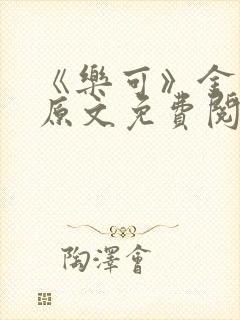 《樂可》全
原文免費閱
陶澤會